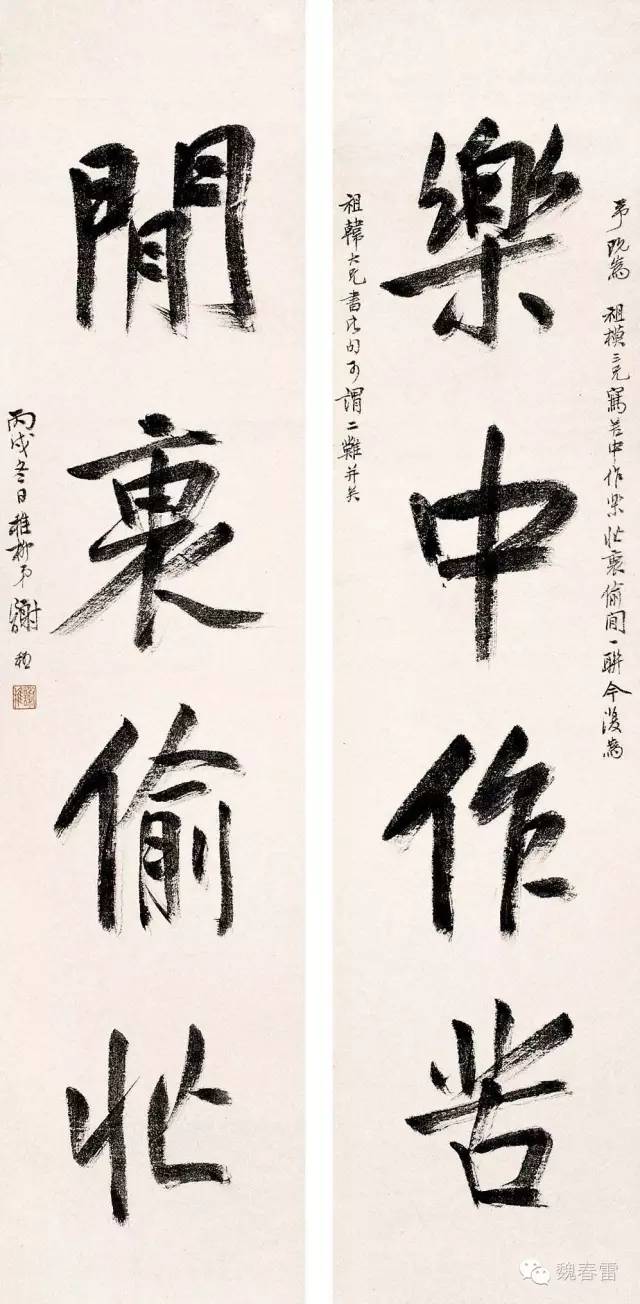 樂中作苦
予既為 祖模三兄寫苦中作樂忙裏偷閒一聯今復為
祖韓大兄書此句可謂二難并矣
閒裏偷忙
丙戌冬日稚柳弟謝稚
魏春雷